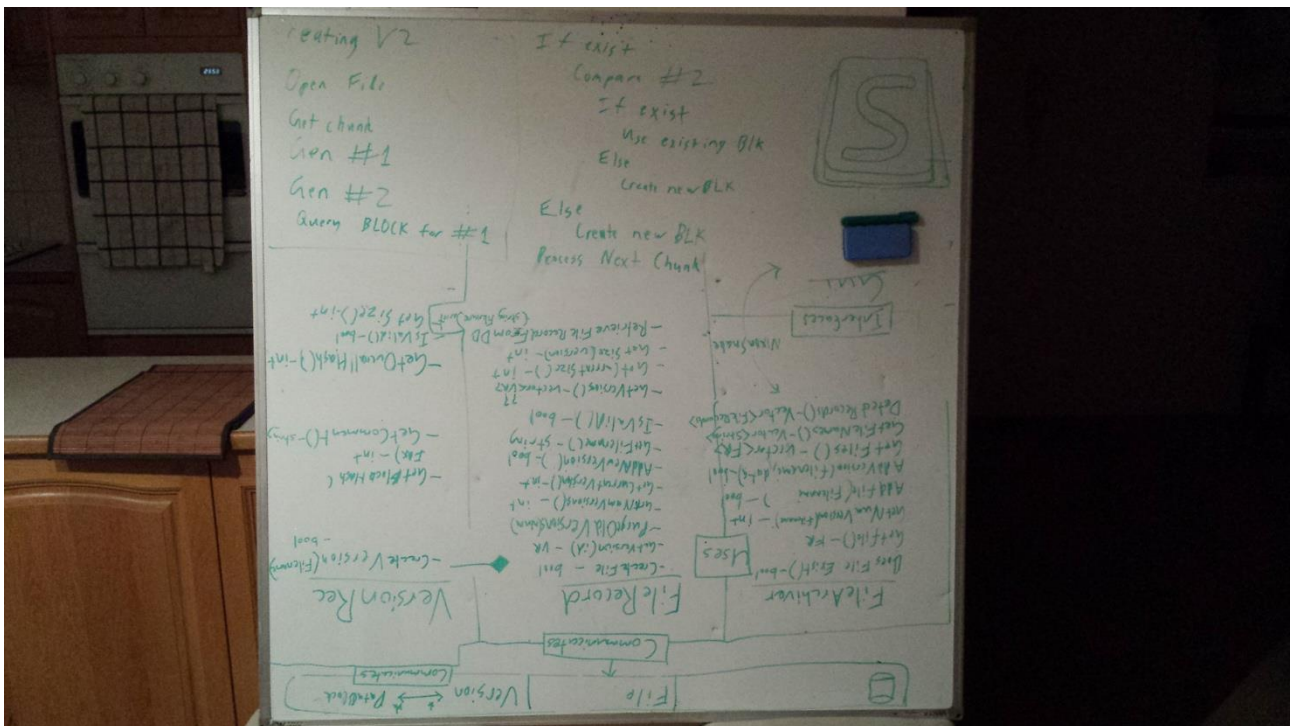 reating V2
Open File
Get chunk
Gen #1
Gen #2
Query BLOCK for #1
If exist
Compare #2
If exist
Use existing Blk
Else
Create new BLK
Else
Create new BLK
Process Next Chunk
S
File
Version
DataBlock
Communicates
Communicates
FileArchiver
Does File Exist()-bool
GetFile() - FR
GetNumVersions( ) - int
AddFile(Filename ) - bool
AddVersion(filename, )-bool
GetFiles() - Vector<FR>
GetFileNames()-Vector<String>
Records()-Vector
Uses
Interfaces
FileRecord
- CreateFile - bool
- GetVersion(id) - VR
- PurgeOldVersions
- GetNumVersions() - int
- GetCurrentVersion()-int
- AddNewVersion( )-bool
- GetFilename() - string
- IsValid() - bool
- GetVersions()-Vector<VR>
??
- GetCurrentSize() - int
- GetSize(version)- int
- RetrieveFileRecordFrom
VersionRec
- CreateVersion(Filename)
- bool
- GetBlockHash(
) - int
- GetComment()-string
- GetOverallHash()-int
IsValid()-bool
GetSize()int